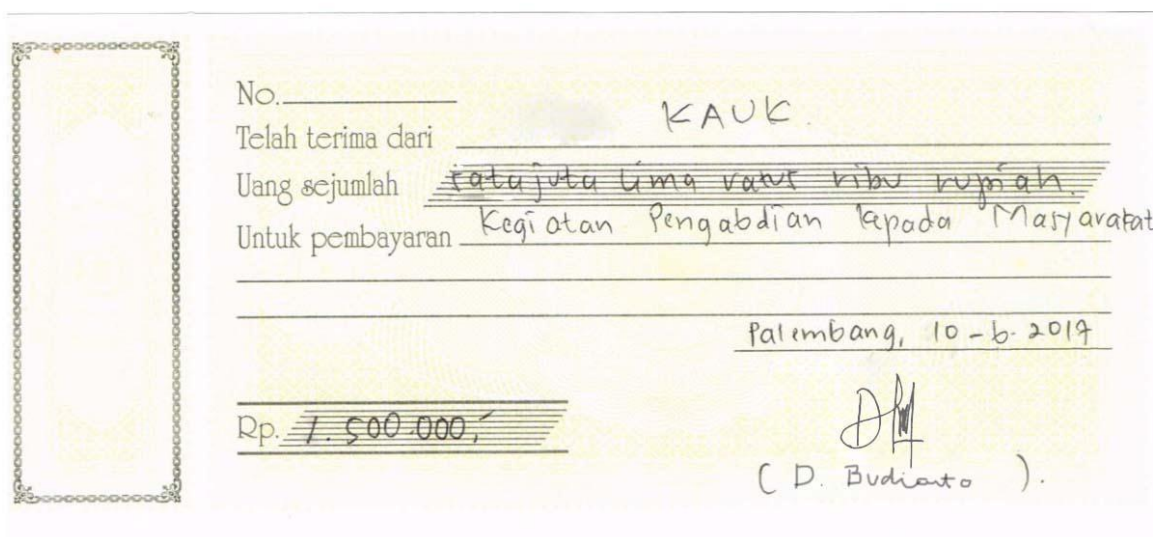 No.
Telah terima dari KAUK.
Uang sejumlah satu juta lima ratus ribu rupiah.
Untuk pembayaran Kegiatan Pengabdian kepada Masyarakat
Palembang, 10-6-2017
Rp. 1.500.000,-
( D. Budianto ).